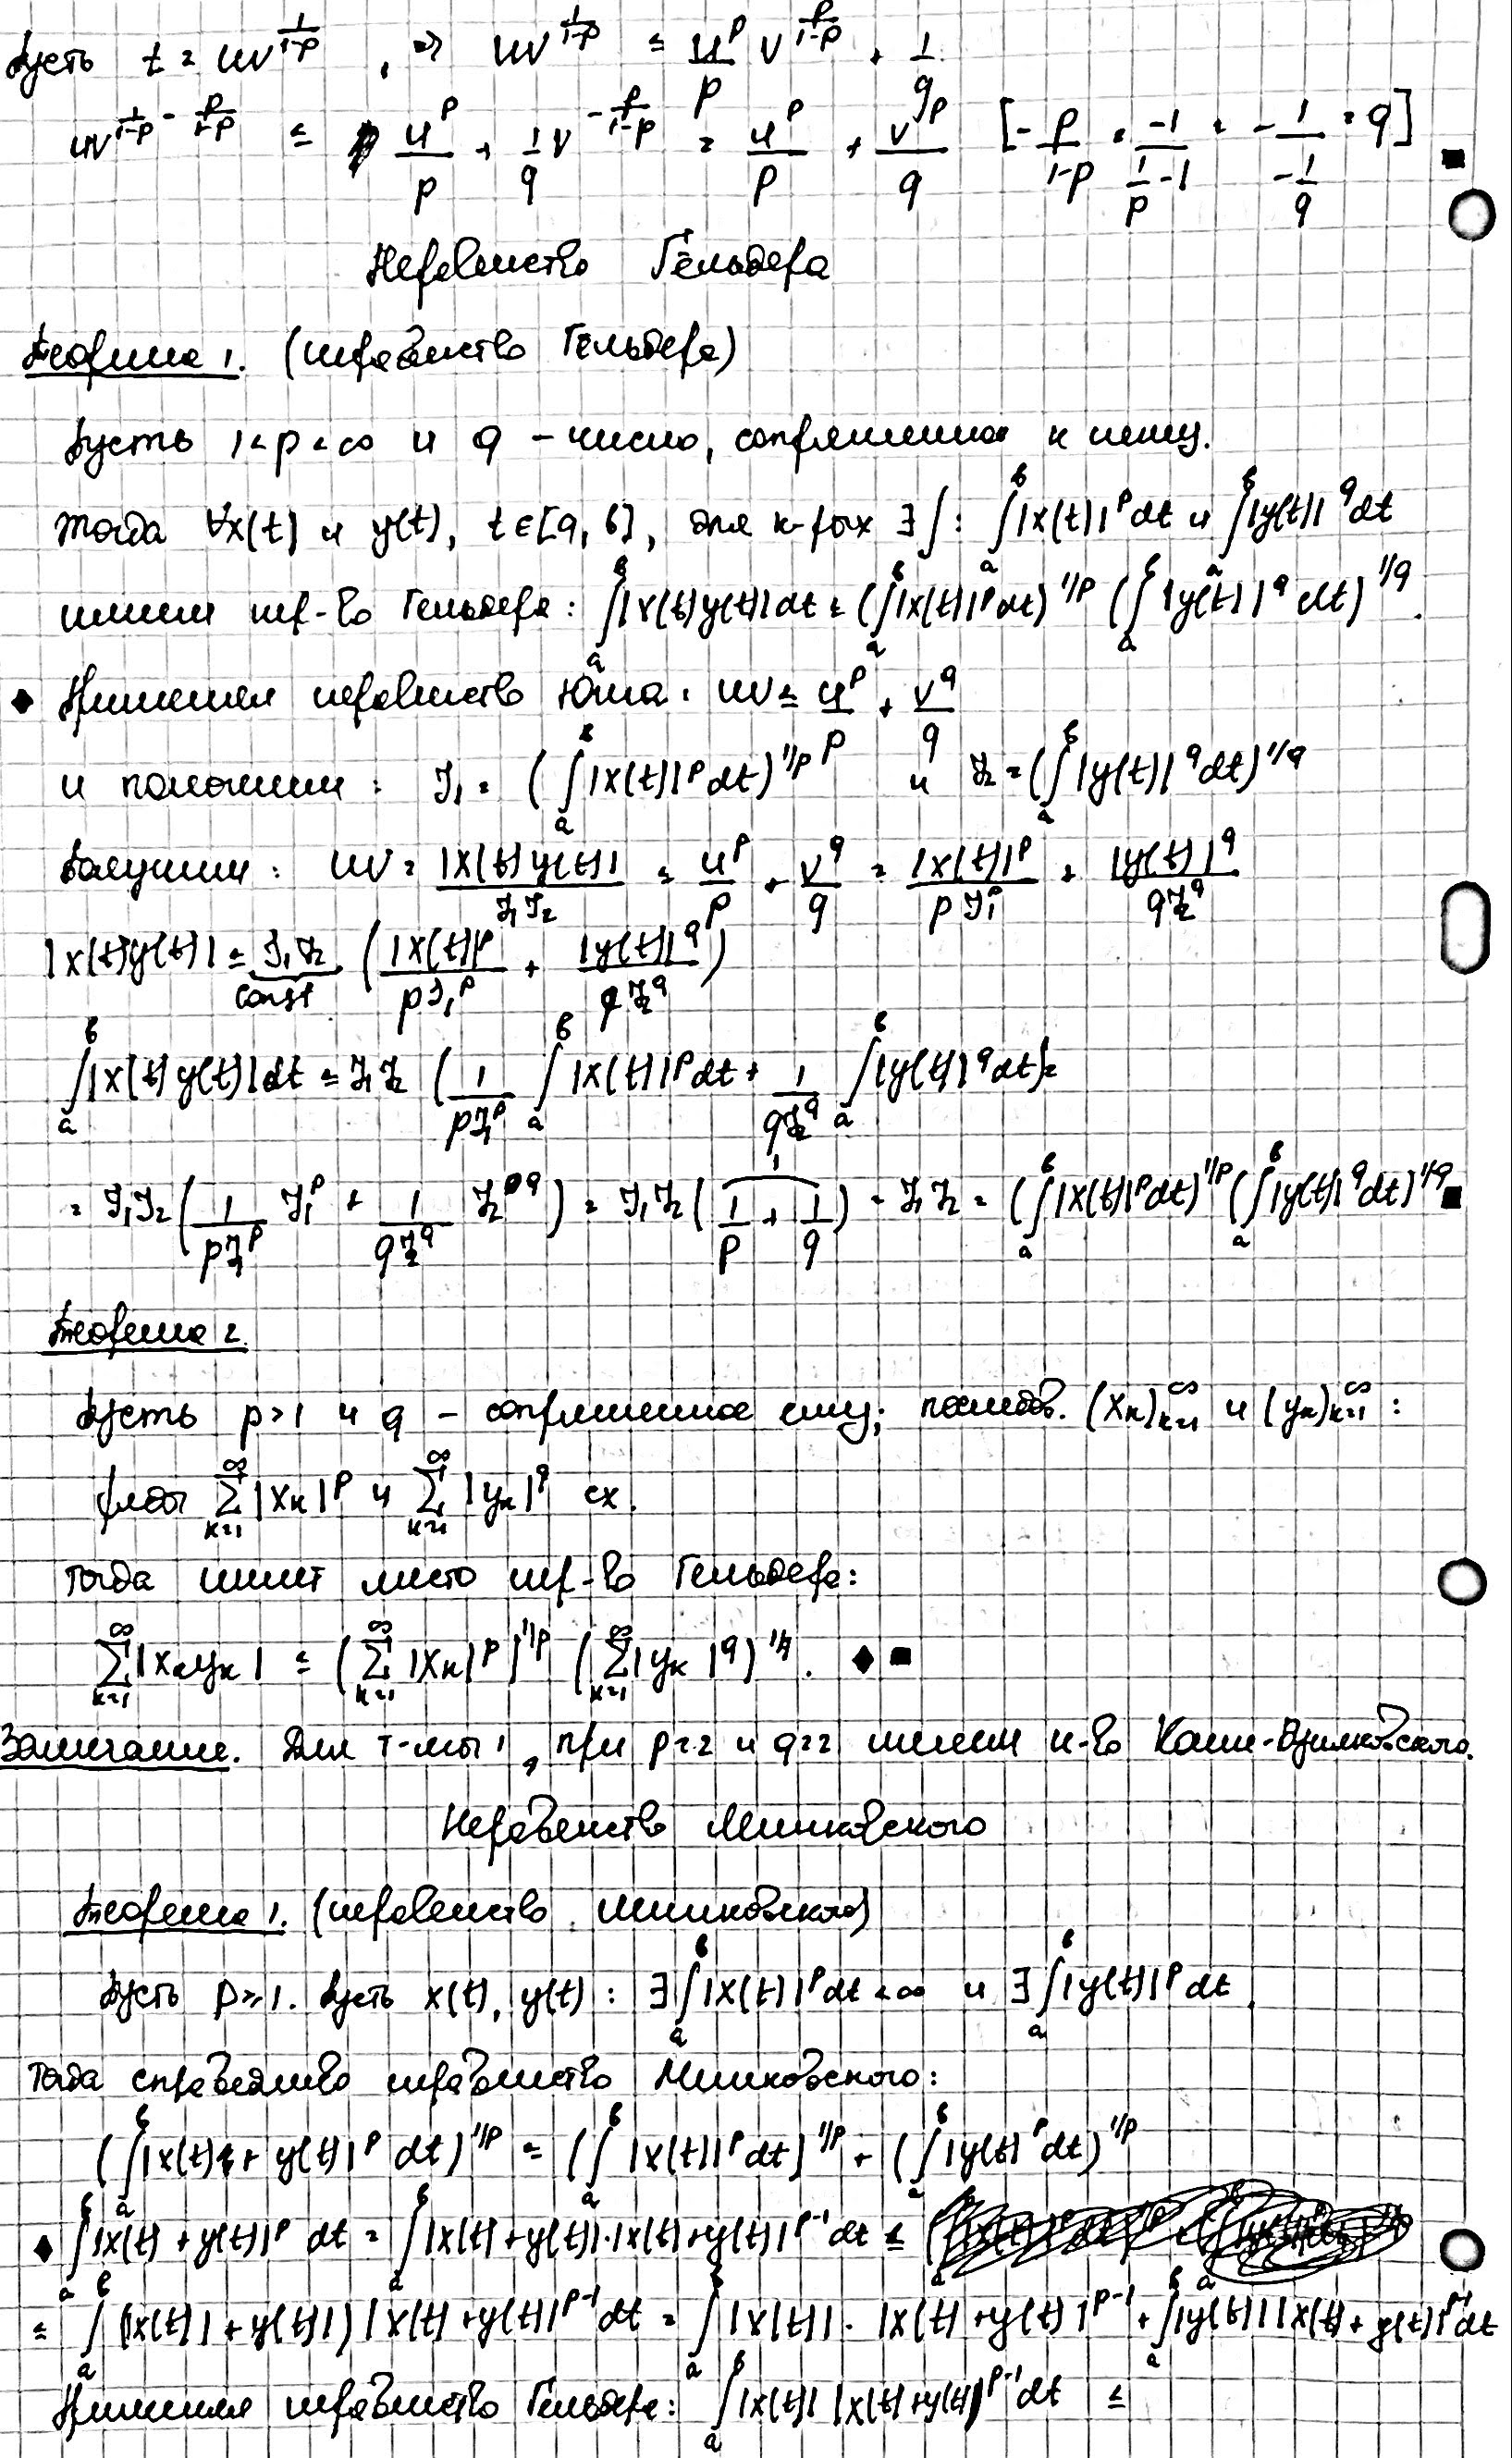 Пусть t = uv^{1/(1-p)}, ⇒ uv^{1/(1-p)} ≤ u^p/p v^{p/(1-p)} + 1/q
uv^{1/(1-p) - p/(1-p)} ≤ u^p/p + 1/q v^{-p/(1-p)} = u^p/p + v^q/q [-p/(1-p) = -1/(1/p - 1) = -1/(-1/q) = q] ■
Неравенство Гёльдера
Теорема 1. (неравенство Гёльдера)
Пусть 1 < p < ∞ и q – число, сопряженное к нему.
Тогда ∀x(t) и y(t), t ∈ [a, b], для к-рых ∃ ∫: ∫_a^b |x(t)|^p dt и ∫_a^b |y(t)|^q dt
имеем нер-во Гельдера: ∫_a^b |x(t)y(t)|dt ≤ (∫_a^b |x(t)|^p dt)^{1/p} (∫_a^b |y(t)|^q dt)^{1/q}.
◆ Применяя неравенство Юнга: uv ≤ u^p/p + v^q/q
и положим: J₁ = (∫_a^b |x(t)|^p dt)^{1/p} и J₂ = (∫_a^b |y(t)|^q dt)^{1/q}
Получим: uv = |x(t)y(t)|/(J₁J₂) ≤ u^p/p + v^q/q = |x(t)|^p/(pJ₁^p) + |y(t)|^q/(qJ₂^q)
|x(t)y(t)| ≤ J₁J₂ (|x(t)|^p/(pJ₁^p) + |y(t)|^q/(qJ₂^q))
const
∫_a^b |x(t)y(t)|dt ≤ J₁J₂ (1/(pJ₁^p) ∫_a^b |x(t)|^p dt + 1/(qJ₂^q) ∫_a^b |y(t)|^q dt) =
= J₁J₂ (1/(pJ₁^p) J₁^p + 1/(qJ₂^q) J₂^q) = J₁J₂ (1/p + 1/q) = J₁J₂ = (∫_a^b |x(t)|^p dt)^{1/p} (∫_a^b |y(t)|^q dt)^{1/q} ■
1
Теорема 2.
Пусть p > 1 и q – сопряженное ему; последов. (x_k)_{k=1}^∞ и (y_k)_{k=1}^∞ :
ряды ∑_{k=1}^∞ |x_k|^p и ∑_{k=1}^∞ |y_k|^q сх.
Тогда имеет место нер-во Гельдера:
∑_{k=1}^∞ |x_k y_k| ≤ (∑_{k=1}^∞ |x_k|^p)^{1/p} (∑_{k=1}^∞ |y_k|^q)^{1/q}. ◆ ■
Замечание. Для т-мы 1, при p=2 и q=2 имеем н-во Коши-Буняковского.
Неравенство Минковского
Теорема 1. (неравенство Минковского)
Пусть p ≥ 1. Пусть x(t), y(t) : ∃ ∫_a^b |x(t)|^p dt < ∞ и ∃ ∫_a^b |y(t)|^p dt.
Тогда справедливо неравенство Минковского:
(∫_a^b |x(t) + y(t)|^p dt)^{1/p} ≤ (∫_a^b |x(t)|^p dt)^{1/p} + (∫_a^b |y(t)|^p dt)^{1/p}
◆ ∫_a^b |x(t) + y(t)|^p dt = ∫_a^b |x(t) + y(t)|·|x(t) + y(t)|^{p-1} dt ≤
≤ ∫_a^b (|x(t)| + y(t)|) |x(t) + y(t)|^{p-1} dt = ∫_a^b |x(t)| · |x(t) + y(t)|^{p-1} + ∫_a^b |y(t)| |x(t) + y(t)|^{p-1} dt
Применяя неравенство Гельдера: ∫_a^b |x(t)| |x(t) + y(t)|^{p-1} dt ≤